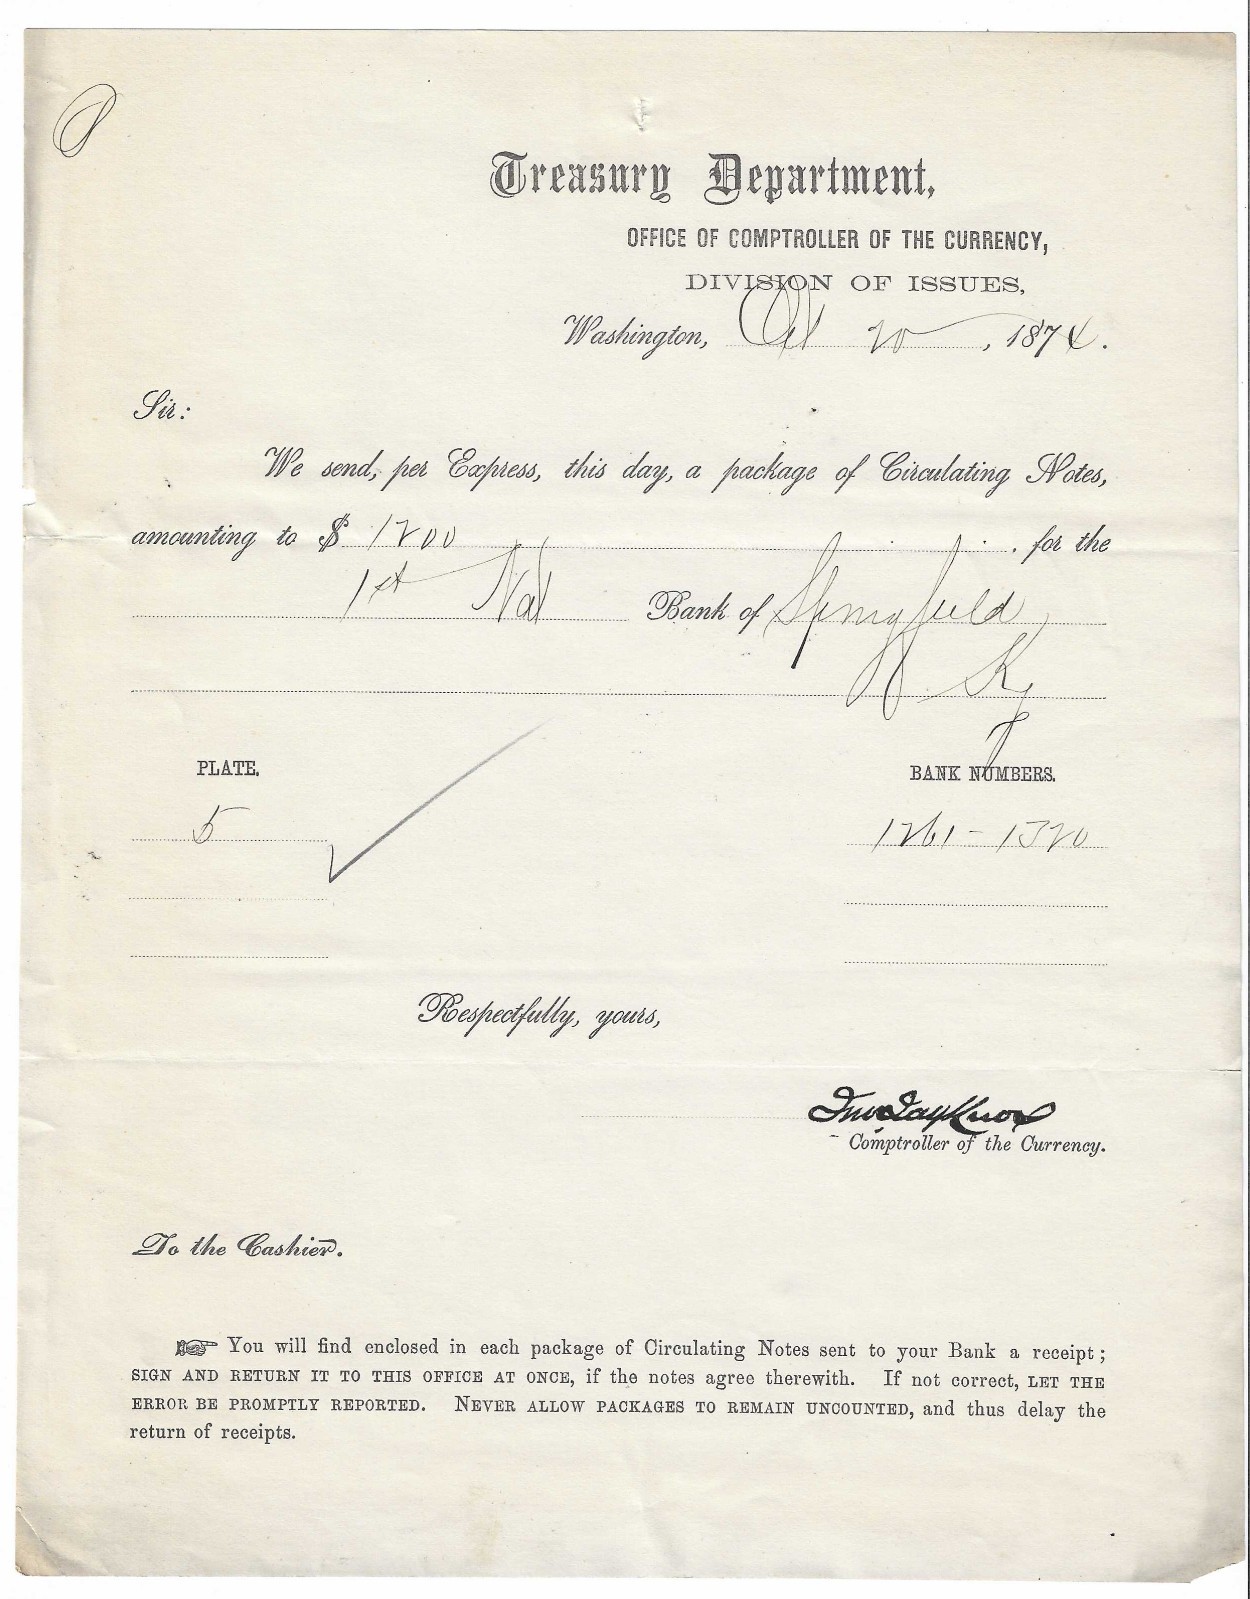 Treasury Department,
OFFICE OF COMPTROLLER OF THE CURRENCY,
DIVISION OF ISSUES,
Washington, Oct 20, 1874.
Sir:
We send, per Express, this day, a package of Circulating Notes,
amounting to $ 1200 for the
1st Nat Bank of Springfield,
Ky
PLATE. BANK NUMBERS.
5 1261-1320
Respectfully, yours,
Jno Jay Knox
Comptroller of the Currency.
To the Cashier.
☞ You will find enclosed in each package of Circulating Notes sent to your Bank a receipt;
SIGN AND RETURN IT TO THIS OFFICE AT ONCE, if the notes agree therewith. If not correct, LET THE
ERROR BE PROMPTLY REPORTED. NEVER ALLOW PACKAGES TO REMAIN UNCOUNTED, and thus delay the
return of receipts.